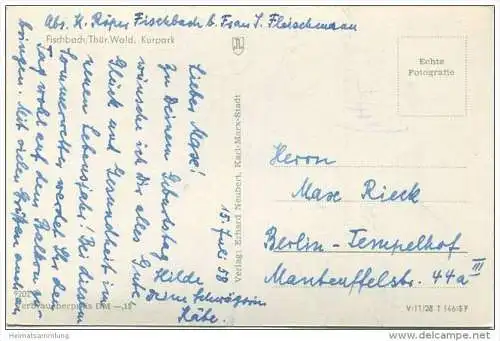 Abs. K. Röper Fischbach b. Frau L. Fleischmann
Fischbach/Thür. Wald. Kurpark
Echte
Fotografie
Lieber Max!
Zu Deinem Geburtstag
wünsche ich Dir alles Gute
Glück und Gesundheit im
neuen Lebensjahr! Bei diesem
Sommerwetter werdet Ihr den
Tag wohl auf dem Balkon zu-
bringen. Mit vielen Grüßen auch an
Hilde
Deine Schwägerin
Käte.
15. Juli 58
Verlag: Erhard Neubert, Karl-Marx-Stadt
Herrn
Max Rieck
Berlin-Tempelhof
Manteuffelstr. 44a III
Verbraucherpreis DM -,15
V-11/28 T 146/57
Heimatsammlung